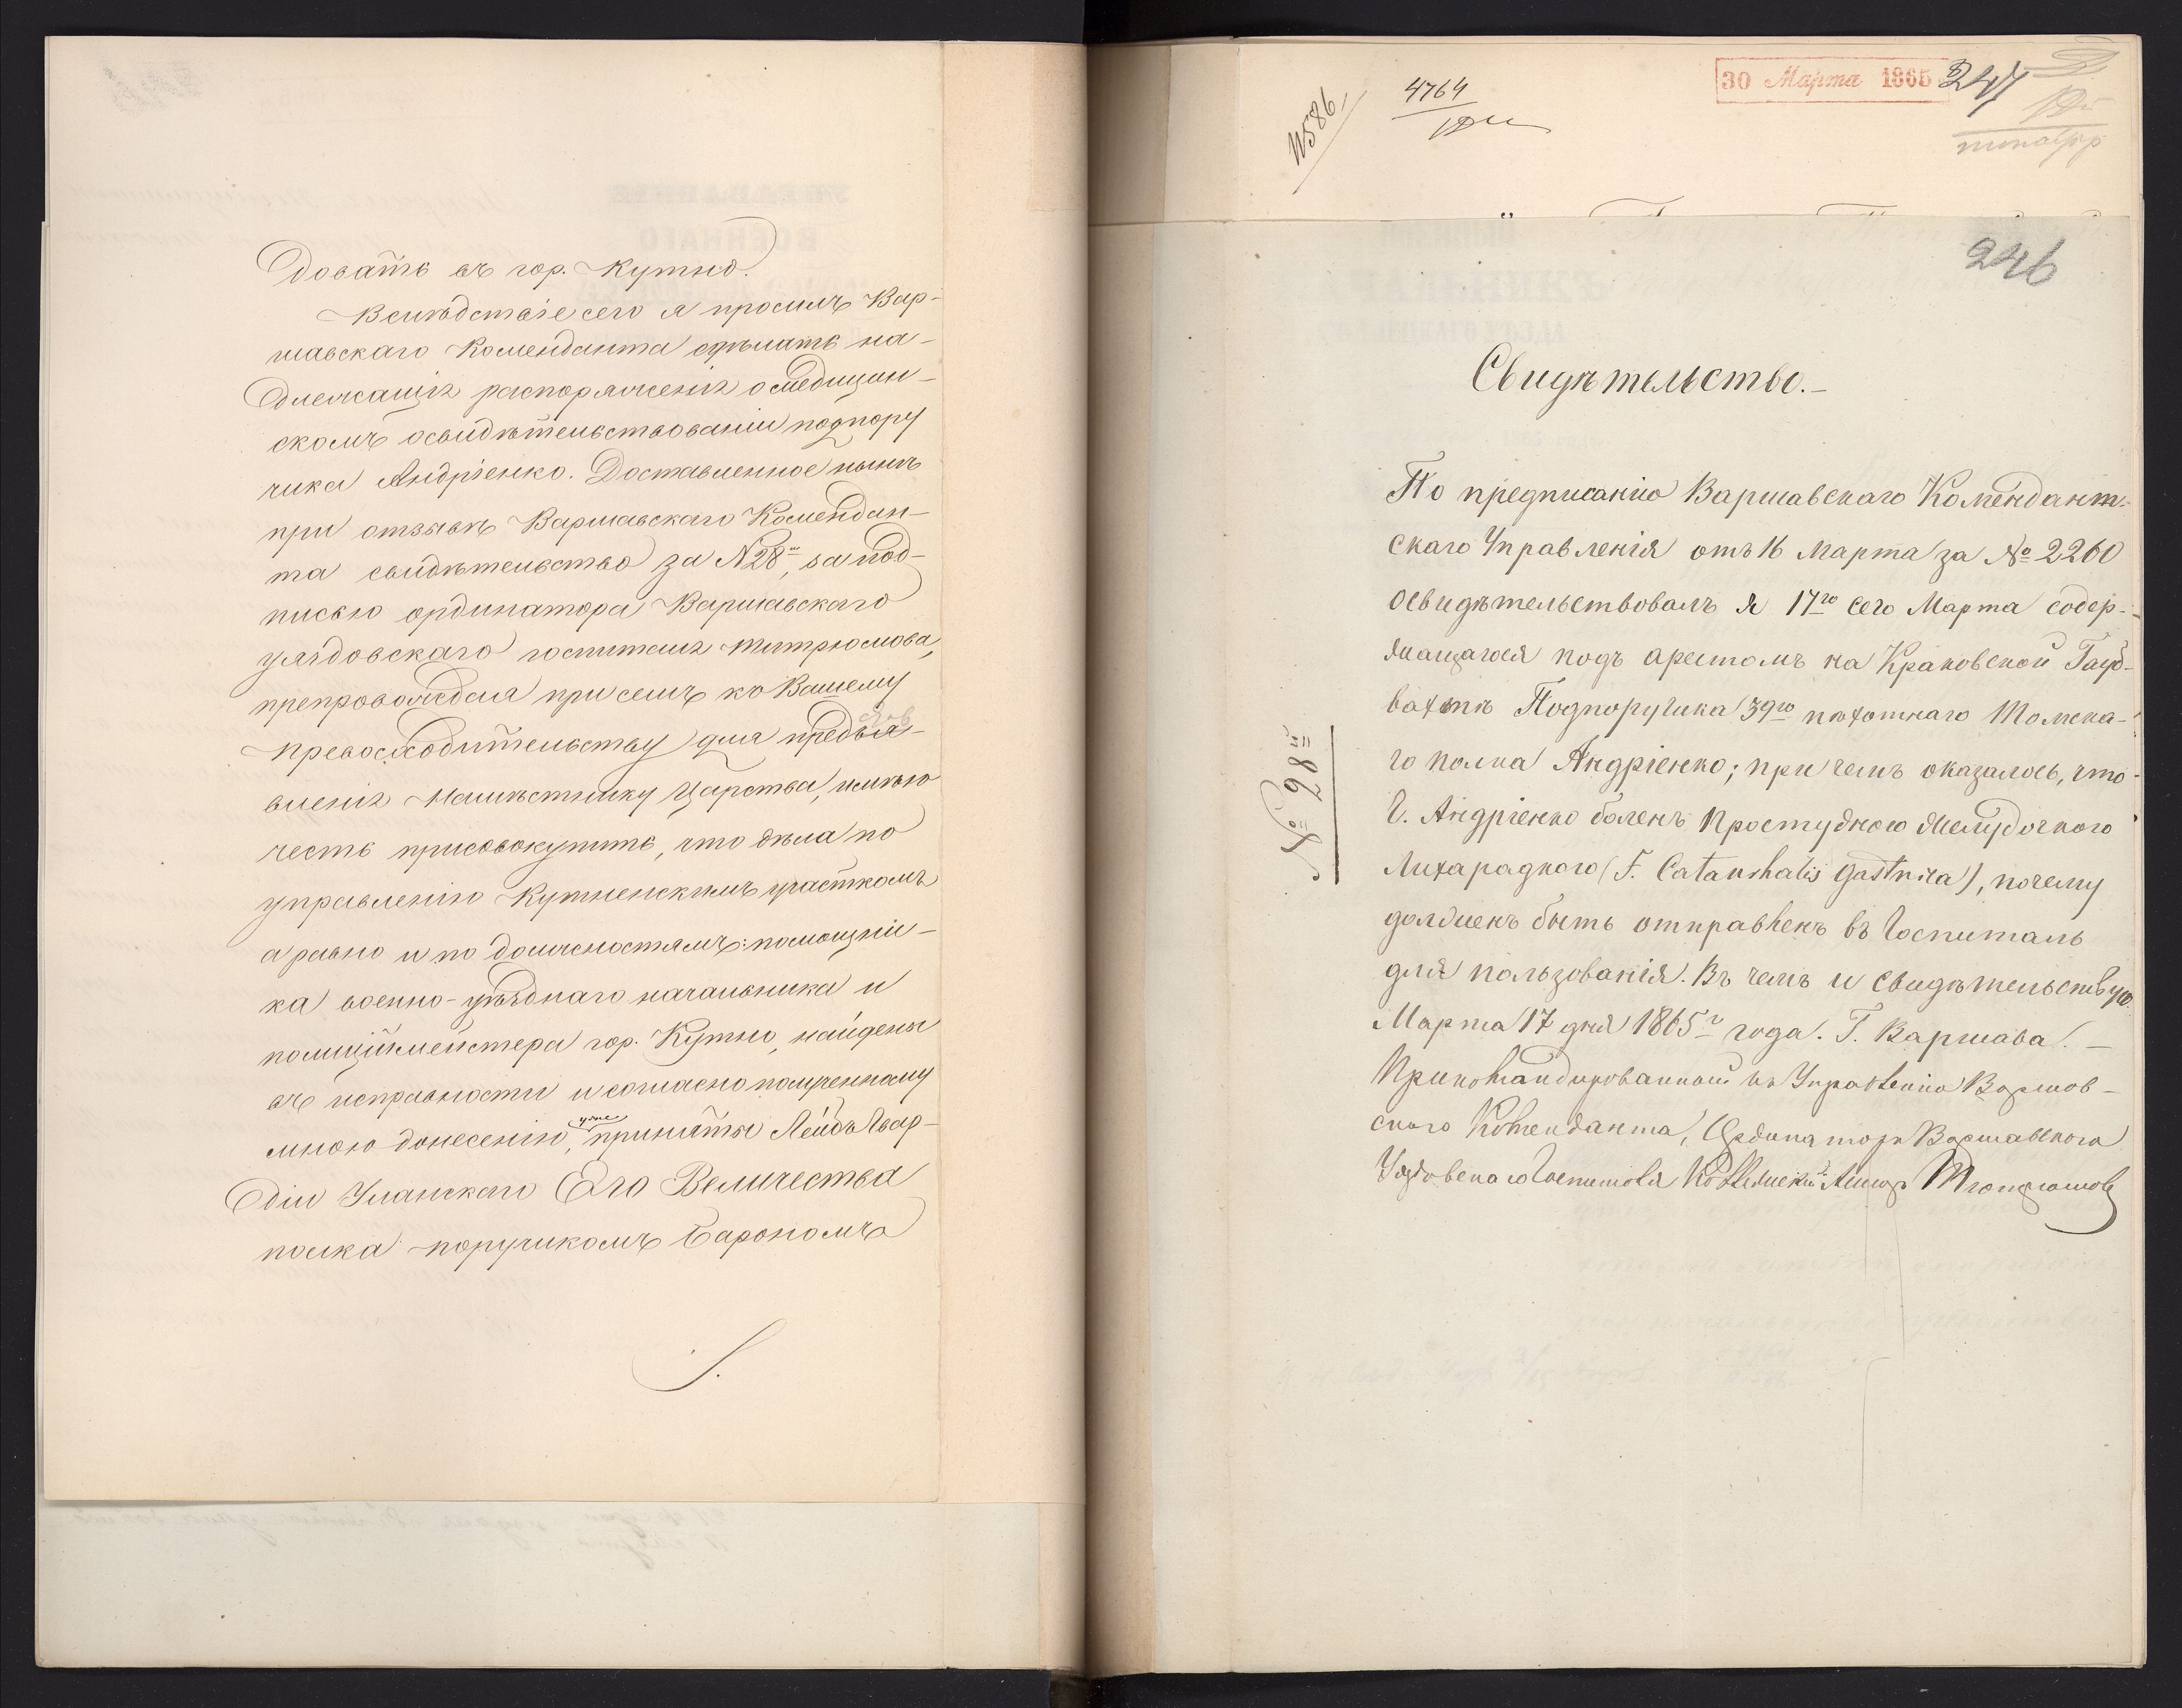 довать въ гор. Кутно.
Вслѣдствіе сего я просилъ Вар-
шавскаго Коменданта сдѣлать на-
длежащія распоряженія о медицин-
скомъ освидѣтельствованіи подпору
чика Андріенко. Доставленное нынѣ
при отзывѣ Варшавскаго Комендан-
та свидѣтельство за №28, за под-
писью ординатора Варшавскаго
уяздовскаго госпиталя
препровождая при семъ къ Вашему
Превосходительству для предъя-
вленія Намѣстнику Царства, имѣю
честь присовокупить, что дѣла по
управленію Кутненскимъ участкомъ
а равно и по должностямъ: помощни-
ка военно-уѣзднаго начальника и
полиціймейстера гор. Кутно, найдены
въ исправности и согласно полученному
мною донесенію, уже приняты Лейбъ Гвар-
діи Уланскаго Его Величества
полка поручикомъ Барономъ
№586
4764
30 Марта 1865
247
246
Свидѣтельство.-
По предписанію Варшавскаго Комендант-
скаго Управленія отъ 16 Марта за № 2260
освидѣтельствовалъ я 17го сего Марта содер-
жащагося подъ арестомъ на Краковской Гауб-
вахтѣ Подпоручика 39го пѣхотнаго Томска-
го полка Андріенко; при чемъ оказалось, что
Г. Андріенко боленъ Простудною Желудочного
Лихарадкого (F. Catarrhalis gastrica), почему
долженъ быть отправленъ въ Госпиталь
для пользованія. Въ чемъ и свидѣтельствую
Марта 17 дня 1865г года. Г. Варшава. -
Прикомандированный къ Управленію Варшав-
скаго Коменданта, Ординаторъ Варшавскаго
Уяздовскаго Госпиталя
№ 28